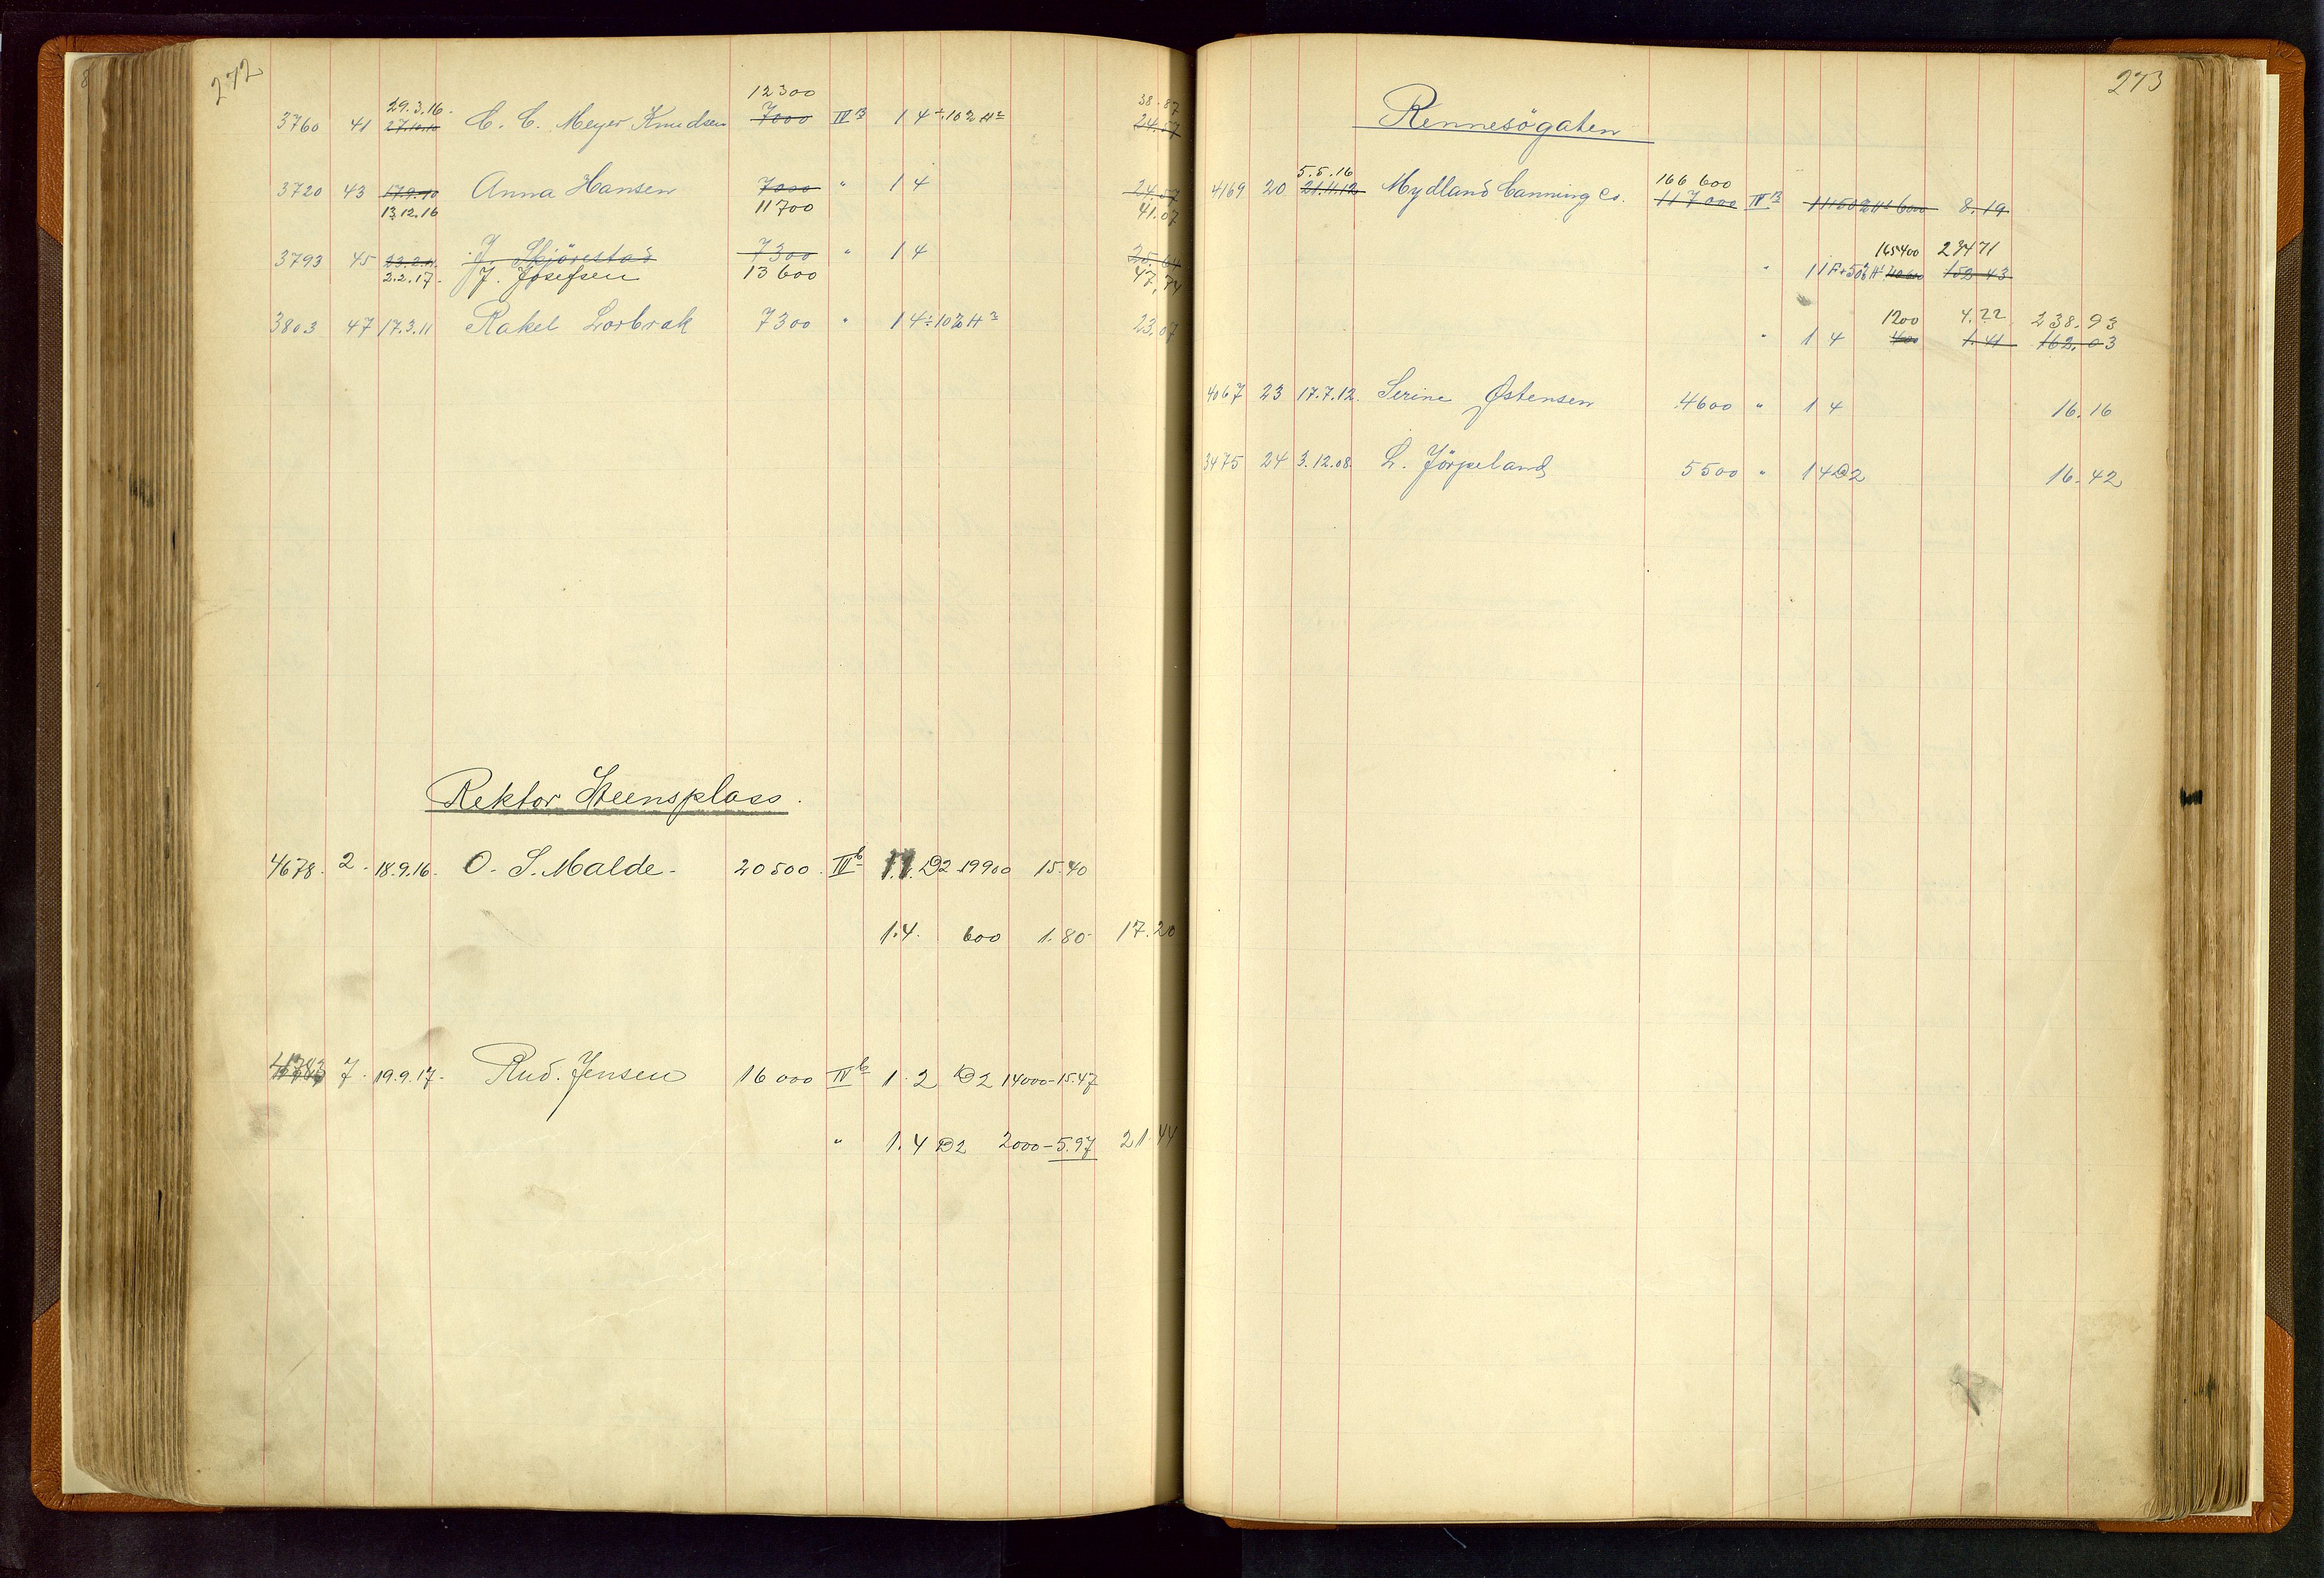 272
12300
29.3.16. 38.87
3760 41 27.10.10 C. C. Meyer Knudsen 7000 IV B 1 4 ÷ 10% H 24.57
3720 43 17.9.10 Anna Hansen 7000 " 1 4 24.57
13.12.16 11700 41.07
3793 45 23.2.11 J. Skjörestad 7300 " 1 4 25.64
2.2.17. J. Josefsen 13600 47.74
3803 47 17.3.11 Rakel Lorbrak 7300 " 1 4 ÷ 10% H 23.07
Rektor Steensplass.
4678. 2. 18.9.16. O. S. Malde. 20500. IV b 1.1. D2 19900 15.40
1.4. 600 1.80 17.20
4783 7. 19.9.17. Rud. Jensen 16000 IV b 1.2 D2 14000-15.47
" 1.4 D2 2000-5.97 21.44
273
Rennesögaten
5.5.16 166 600
4169 20 21.11.12 Mydland Canning Co. 117000 IV B 600 8.19
165400 23471
" 11F+50% H 152 43
1200 4.22 238.93
" 1 4 400 1.41 162.03
4067 23 17.7.12. Serine Østensen 4600 " 1 4 16.16
3475 24 3.12.08. L. Jörpeland 5500 " 1 4 D2 16.42